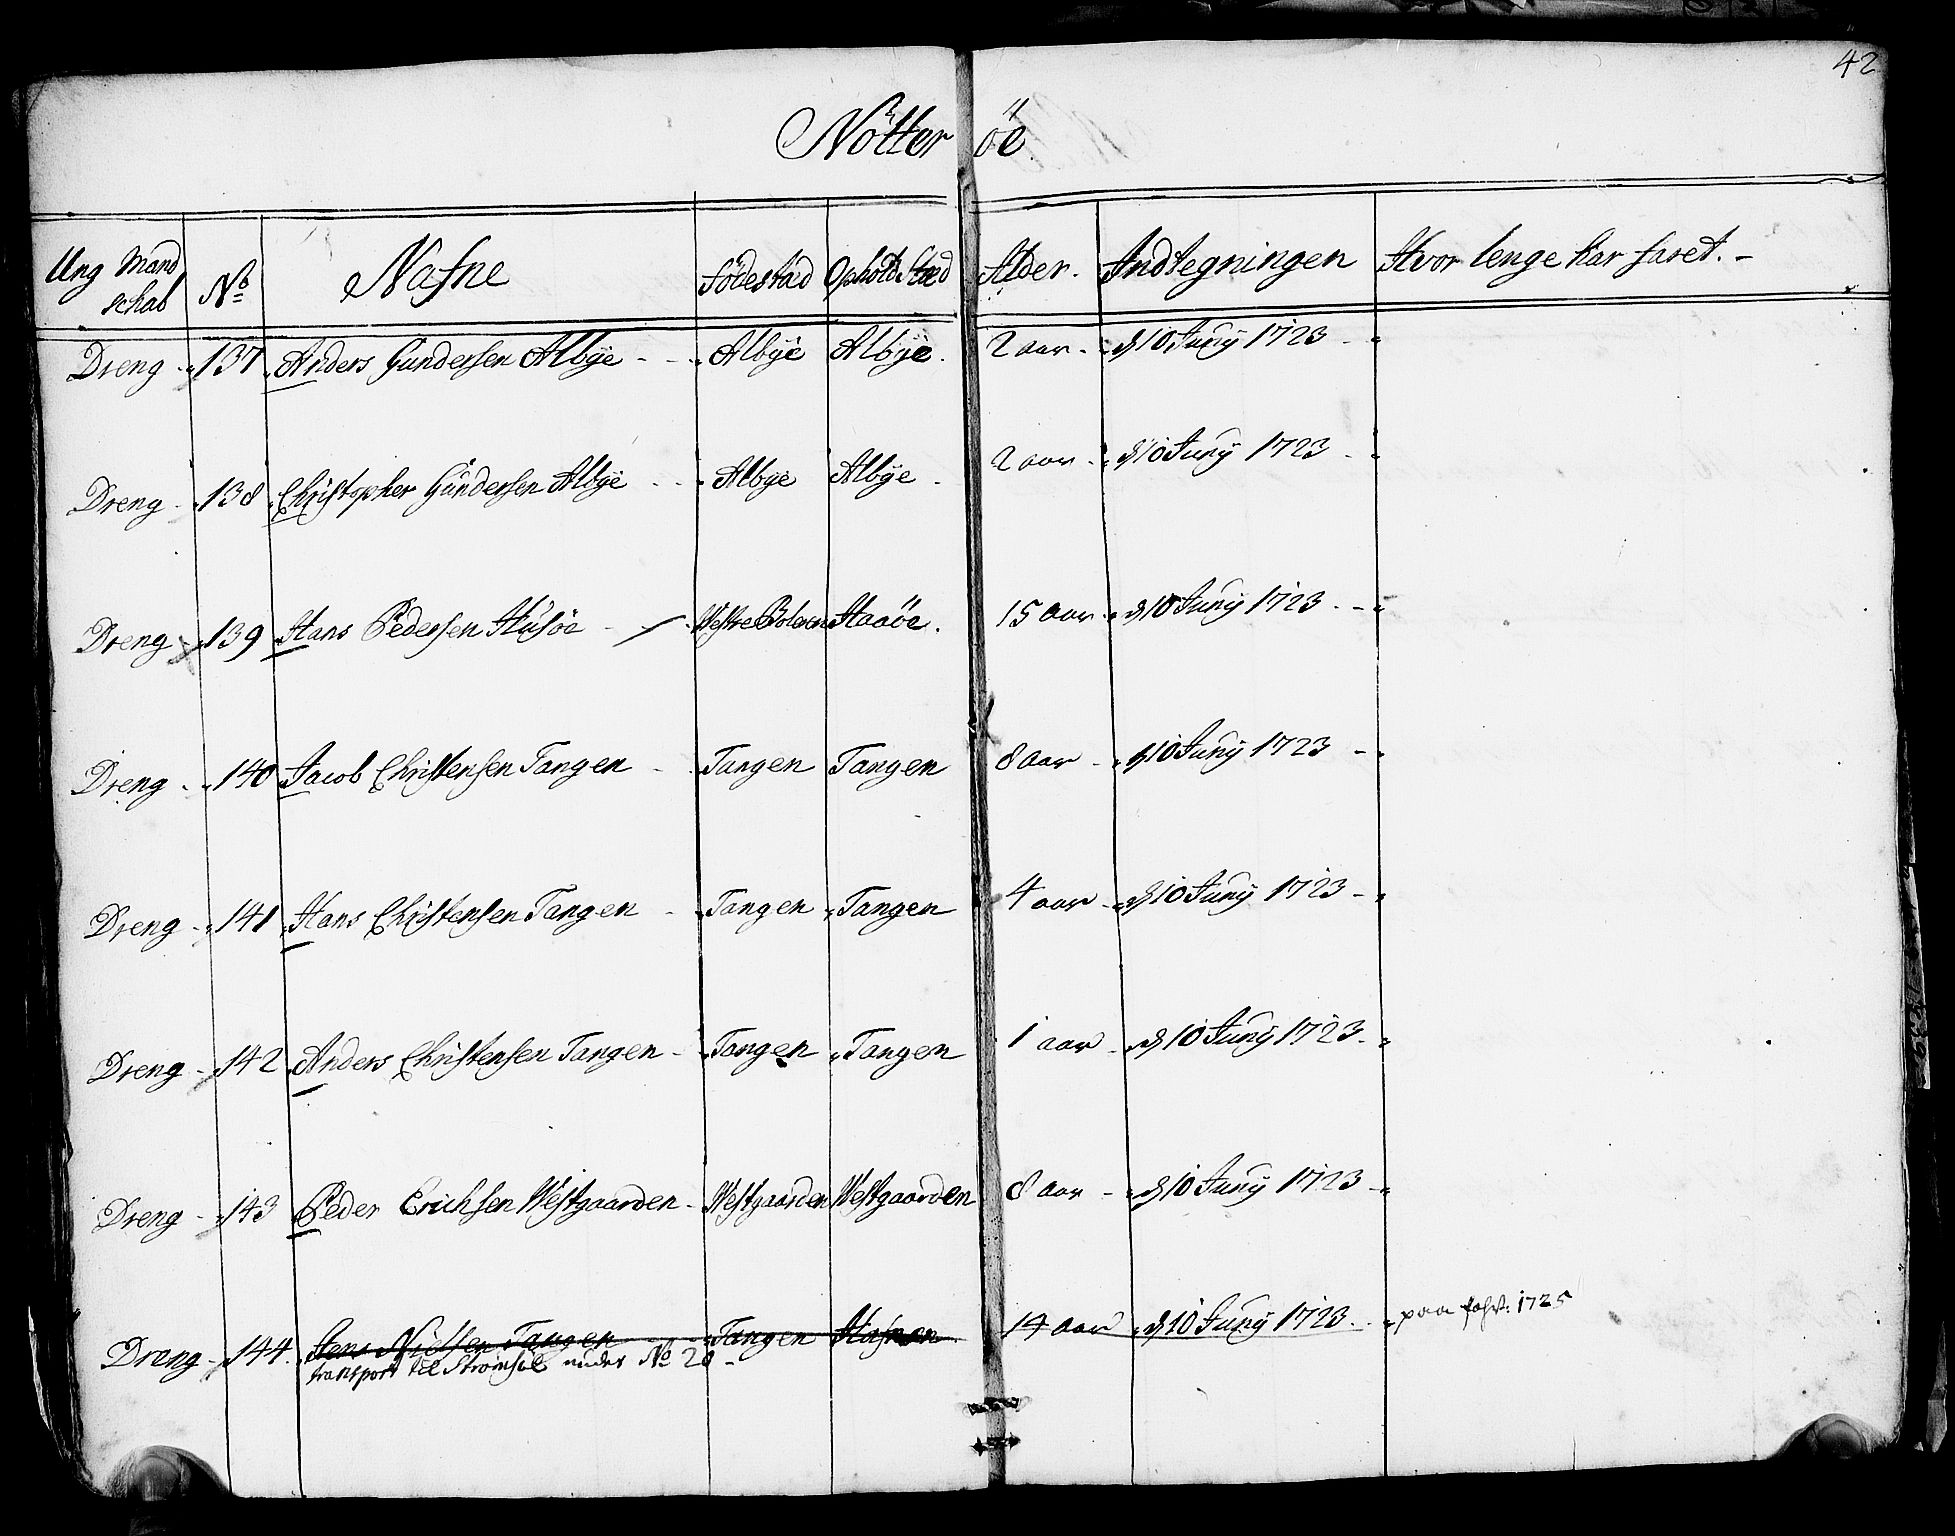 42
Nötteröe.
Ung Mand schab No Nafne födestæd Ophold Stæd Alder. Indtegningen Hvor lenge har faret. -
Dreng - 137 Anders Gundersen Albye - Albye Albye. 2 aar. d 10 Juny 1723 -
Dreng - 138 Christopher Gundersen Albye - Albye Albye - 2 aar - d 10 Juny 1723 -
Dreng - 139 Hans Pedersen Husöe - Westre Bolæren Haaöe. 15 aar d 10 Juny 1723 -
Dreng - 140 Jacob Christensen Tangen - Tangen Tangen 8 aar - d 10 Juny 1723 -
Dreng - 141 Hans Christensen Tangen - Tangen Tangen 4 aar - d 10 Juny 1723 -
Dreng - 142 Anders Christensen Tangen - Tangen Tangen 1 aar d 10 Juny 1723 -
Dreng - 143 Peder Erichsen Westgaarden - Westgaarden Westgaarden 8 aar - d 10 Juny 1723 -
Dreng - 144. Jens Nielsen Tangen Tangen 14 aar d 10 Juny 1723. paa fahrt: 1725
transport til Strömsöe under No 28 -